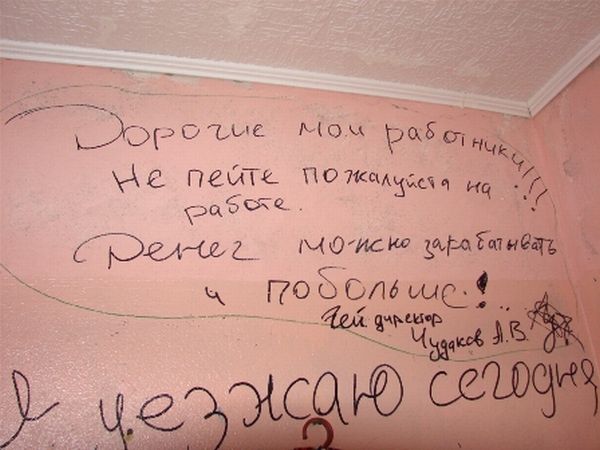 Дорогие мои работники!!!
Не пейте пожалуйста на
работе.
Денег можно зарабатывать
и побольше!
Гей директор
Чудаков А.В.
Я уезжаю сегодня